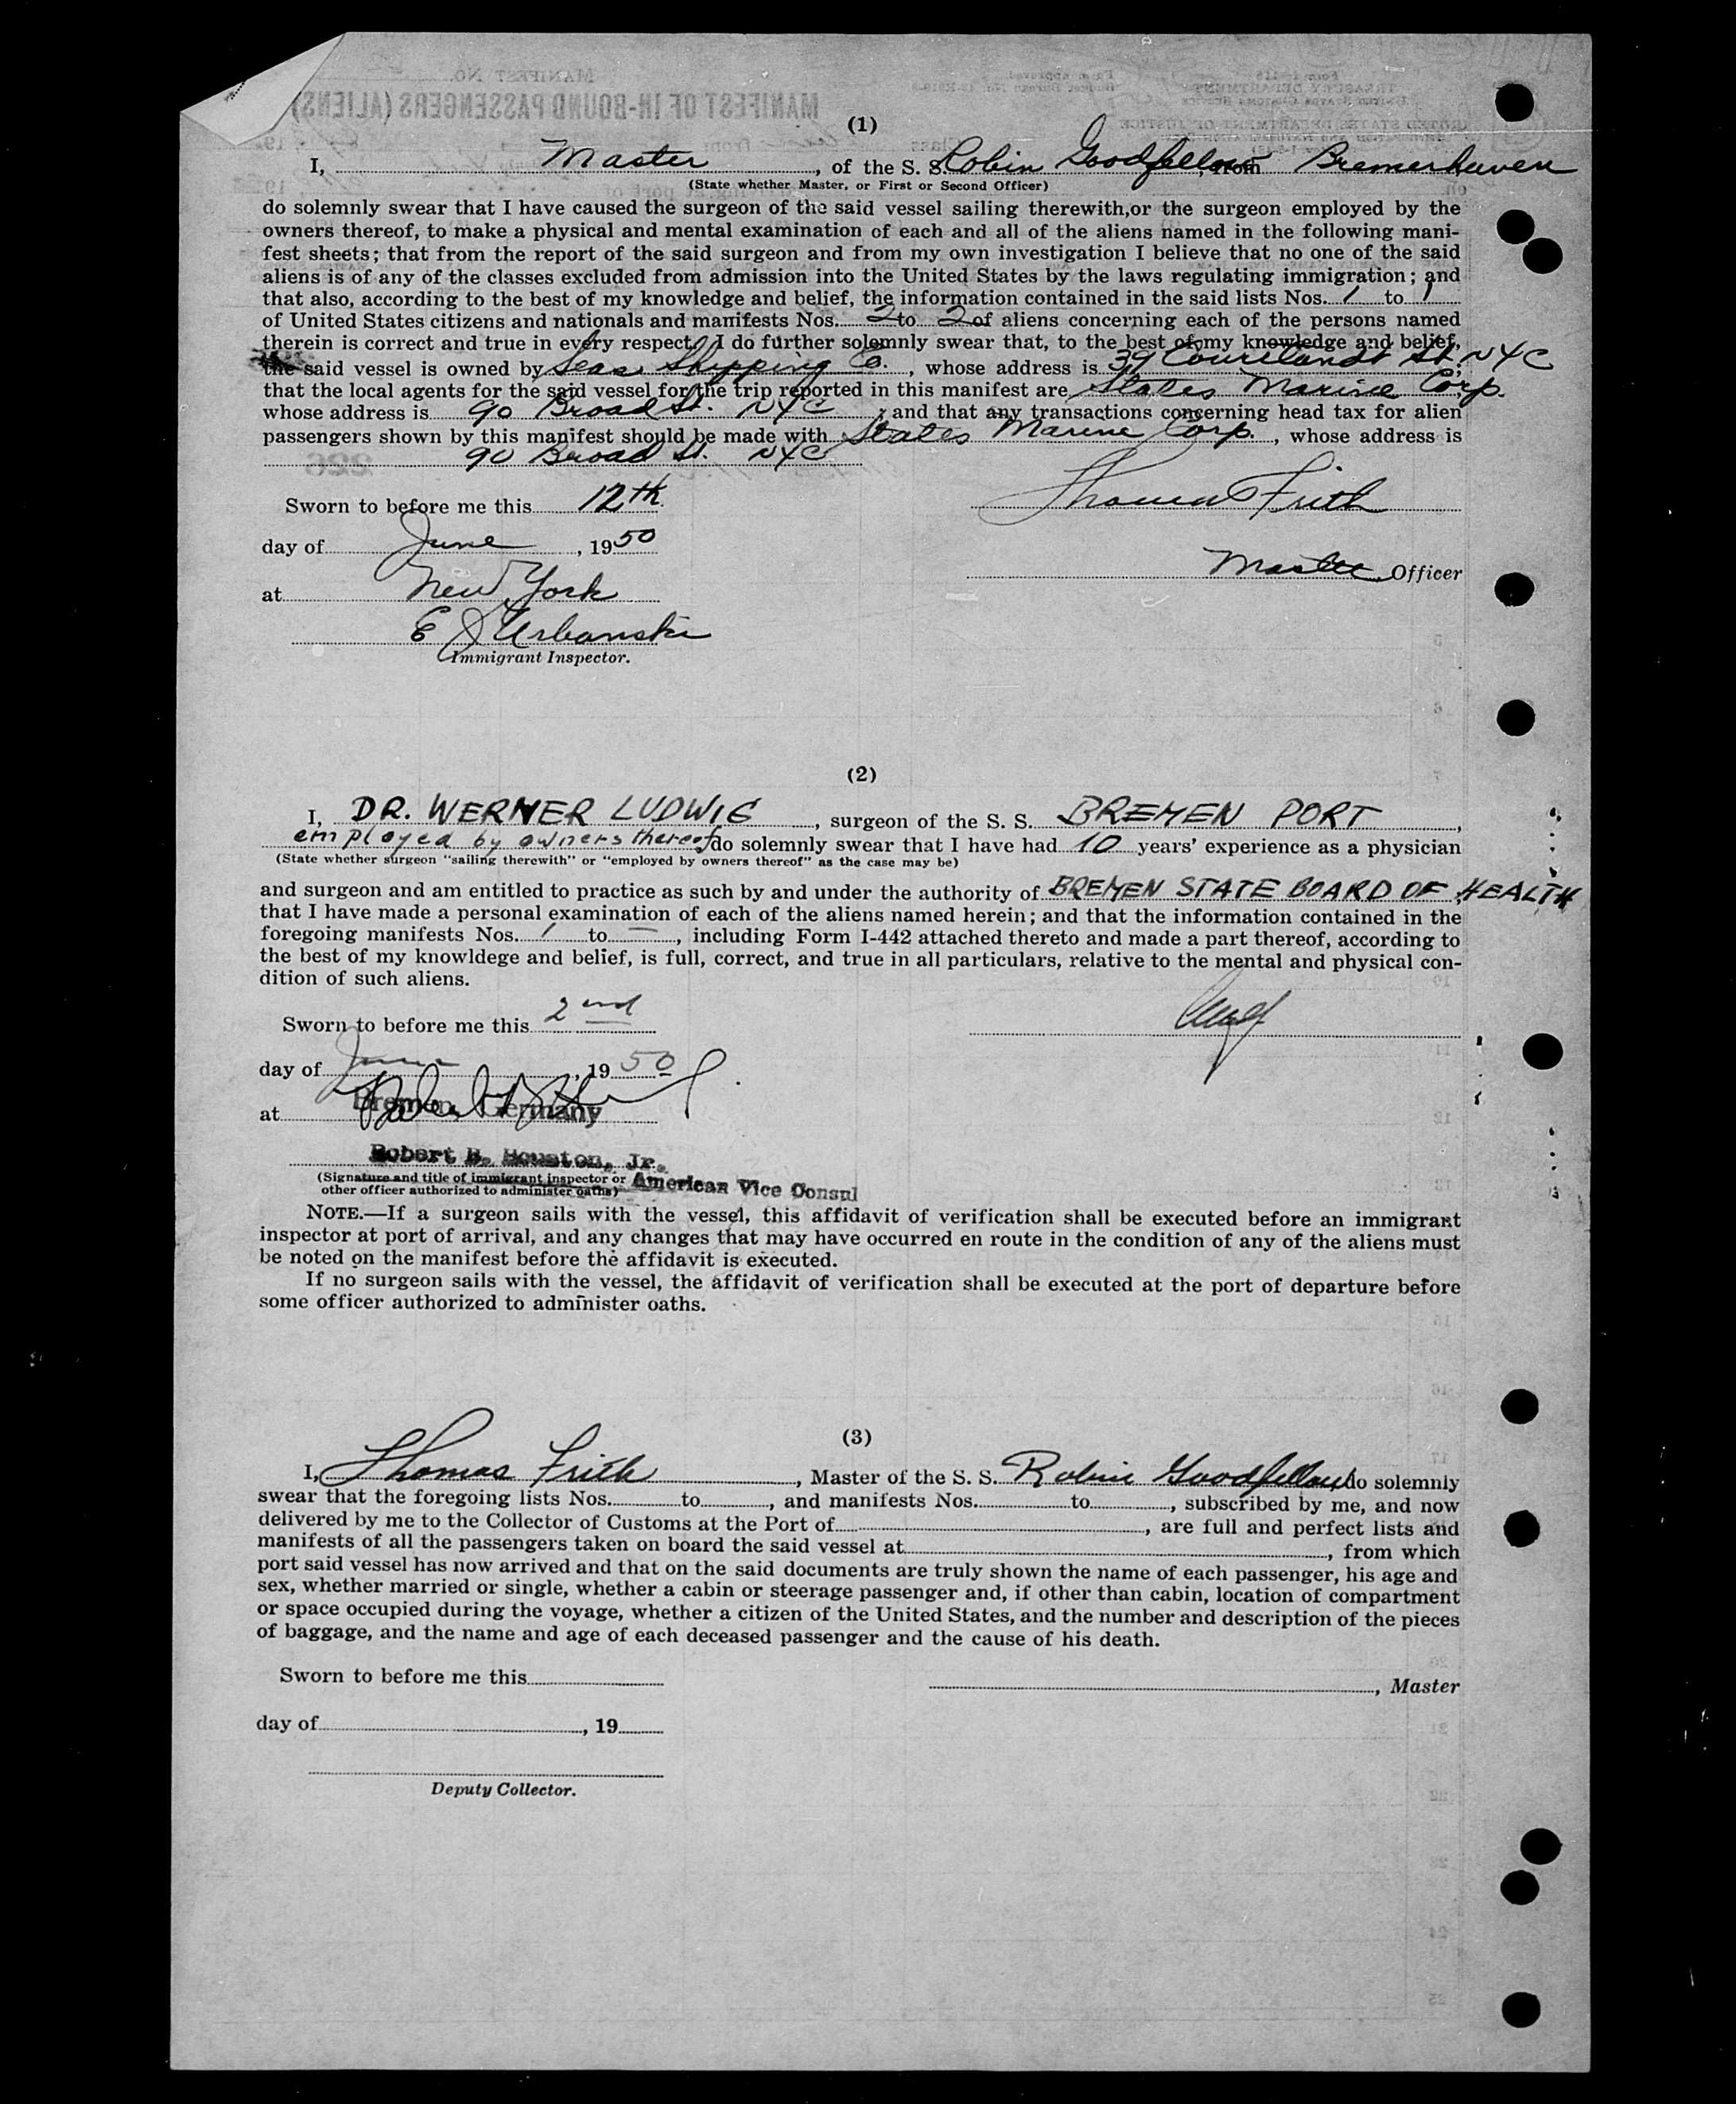 MANIFEST NO.
MANIFEST OF IN-BOUND PASSENGERS (ALIENS)
(1)
I, Master, of the S. S. Robin Goodfellow from Bremerhaven
(State whether Master, or First or Second Officer)
do solemnly swear that I have caused the surgeon of the said vessel sailing therewith,or the surgeon employed by the
owners thereof, to make a physical and mental examination of each and all of the aliens named in the following mani-
fest sheets; that from the report of the said surgeon and from my own investigation I believe that no one of the said
aliens is of any of the classes excluded from admission into the United States by the laws regulating immigration; and
that also, according to the best of my knowledge and belief, the information contained in the said lists Nos. 1 to 1
of United States citizens and nationals and manifests Nos. 2 to 2 of aliens concerning each of the persons named
therein is correct and true in every respect. I do further solemnly swear that, to the best of my knowledge and belief,
the said vessel is owned by Seas Shipping Co., whose address is 39 Courtlandt St. NYC
that the local agents for the said vessel for the trip reported in this manifest are States Marine Corp.
whose address is 90 Broad St. NYC; and that any transactions concerning head tax for alien
passengers shown by this manifest should be made with States Marine Corp., whose address is
90 Broad St. NYC
Sworn to before me this 12th
Thomas Frith
day of June, 1950
Master Officer
at New York
E J Urbanski
Immigrant Inspector.
(2)
I, DR. WERNER LUDWIG, surgeon of the S. S. BREMEN PORT,
employed by owners thereof do solemnly swear that I have had 10 years' experience as a physician
(State whether surgeon "sailing therewith" or "employed by owners thereof" as the case may be)
and surgeon and am entitled to practice as such by and under the authority of BREMEN STATE BOARD OF HEALTH
that I have made a personal examination of each of the aliens named herein; and that the information contained in the
foregoing manifests Nos. 1 to —, including Form I-442 attached thereto and made a part thereof, according to
the best of my knowldege and belief, is full, correct, and true in all particulars, relative to the mental and physical con-
dition of such aliens.
Sworn to before me this 2nd
day of June, 1950
at Bremen, Germany
Robert B. Houston, Jr.
(Signature and title of immigrant inspector or American Vice Consul
other officer authorized to administer oaths)
NOTE.—If a surgeon sails with the vessel, this affidavit of verification shall be executed before an immigrant
inspector at port of arrival, and any changes that may have occurred en route in the condition of any of the aliens must
be noted on the manifest before the affidavit is executed.
If no surgeon sails with the vessel, the affidavit of verification shall be executed at the port of departure before
some officer authorized to administer oaths.
(3)
I, Thomas Frith, Master of the S. S. Robin Goodfellow do solemnly
swear that the foregoing lists Nos. to , and manifests Nos. to , subscribed by me, and now
delivered by me to the Collector of Customs at the Port of , are full and perfect lists and
manifests of all the passengers taken on board the said vessel at , from which
port said vessel has now arrived and that on the said documents are truly shown the name of each passenger, his age and
sex, whether married or single, whether a cabin or steerage passenger and, if other than cabin, location of compartment
or space occupied during the voyage, whether a citizen of the United States, and the number and description of the pieces
of baggage, and the name and age of each deceased passenger and the cause of his death.
Sworn to before me this
, Master
day of , 19
Deputy Collector.